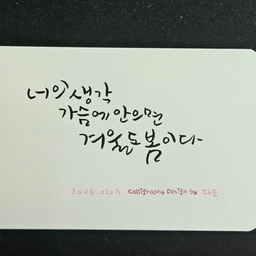 너의 생각
가슴에 안으면
겨울도 봄이다
Calligraphy Design by